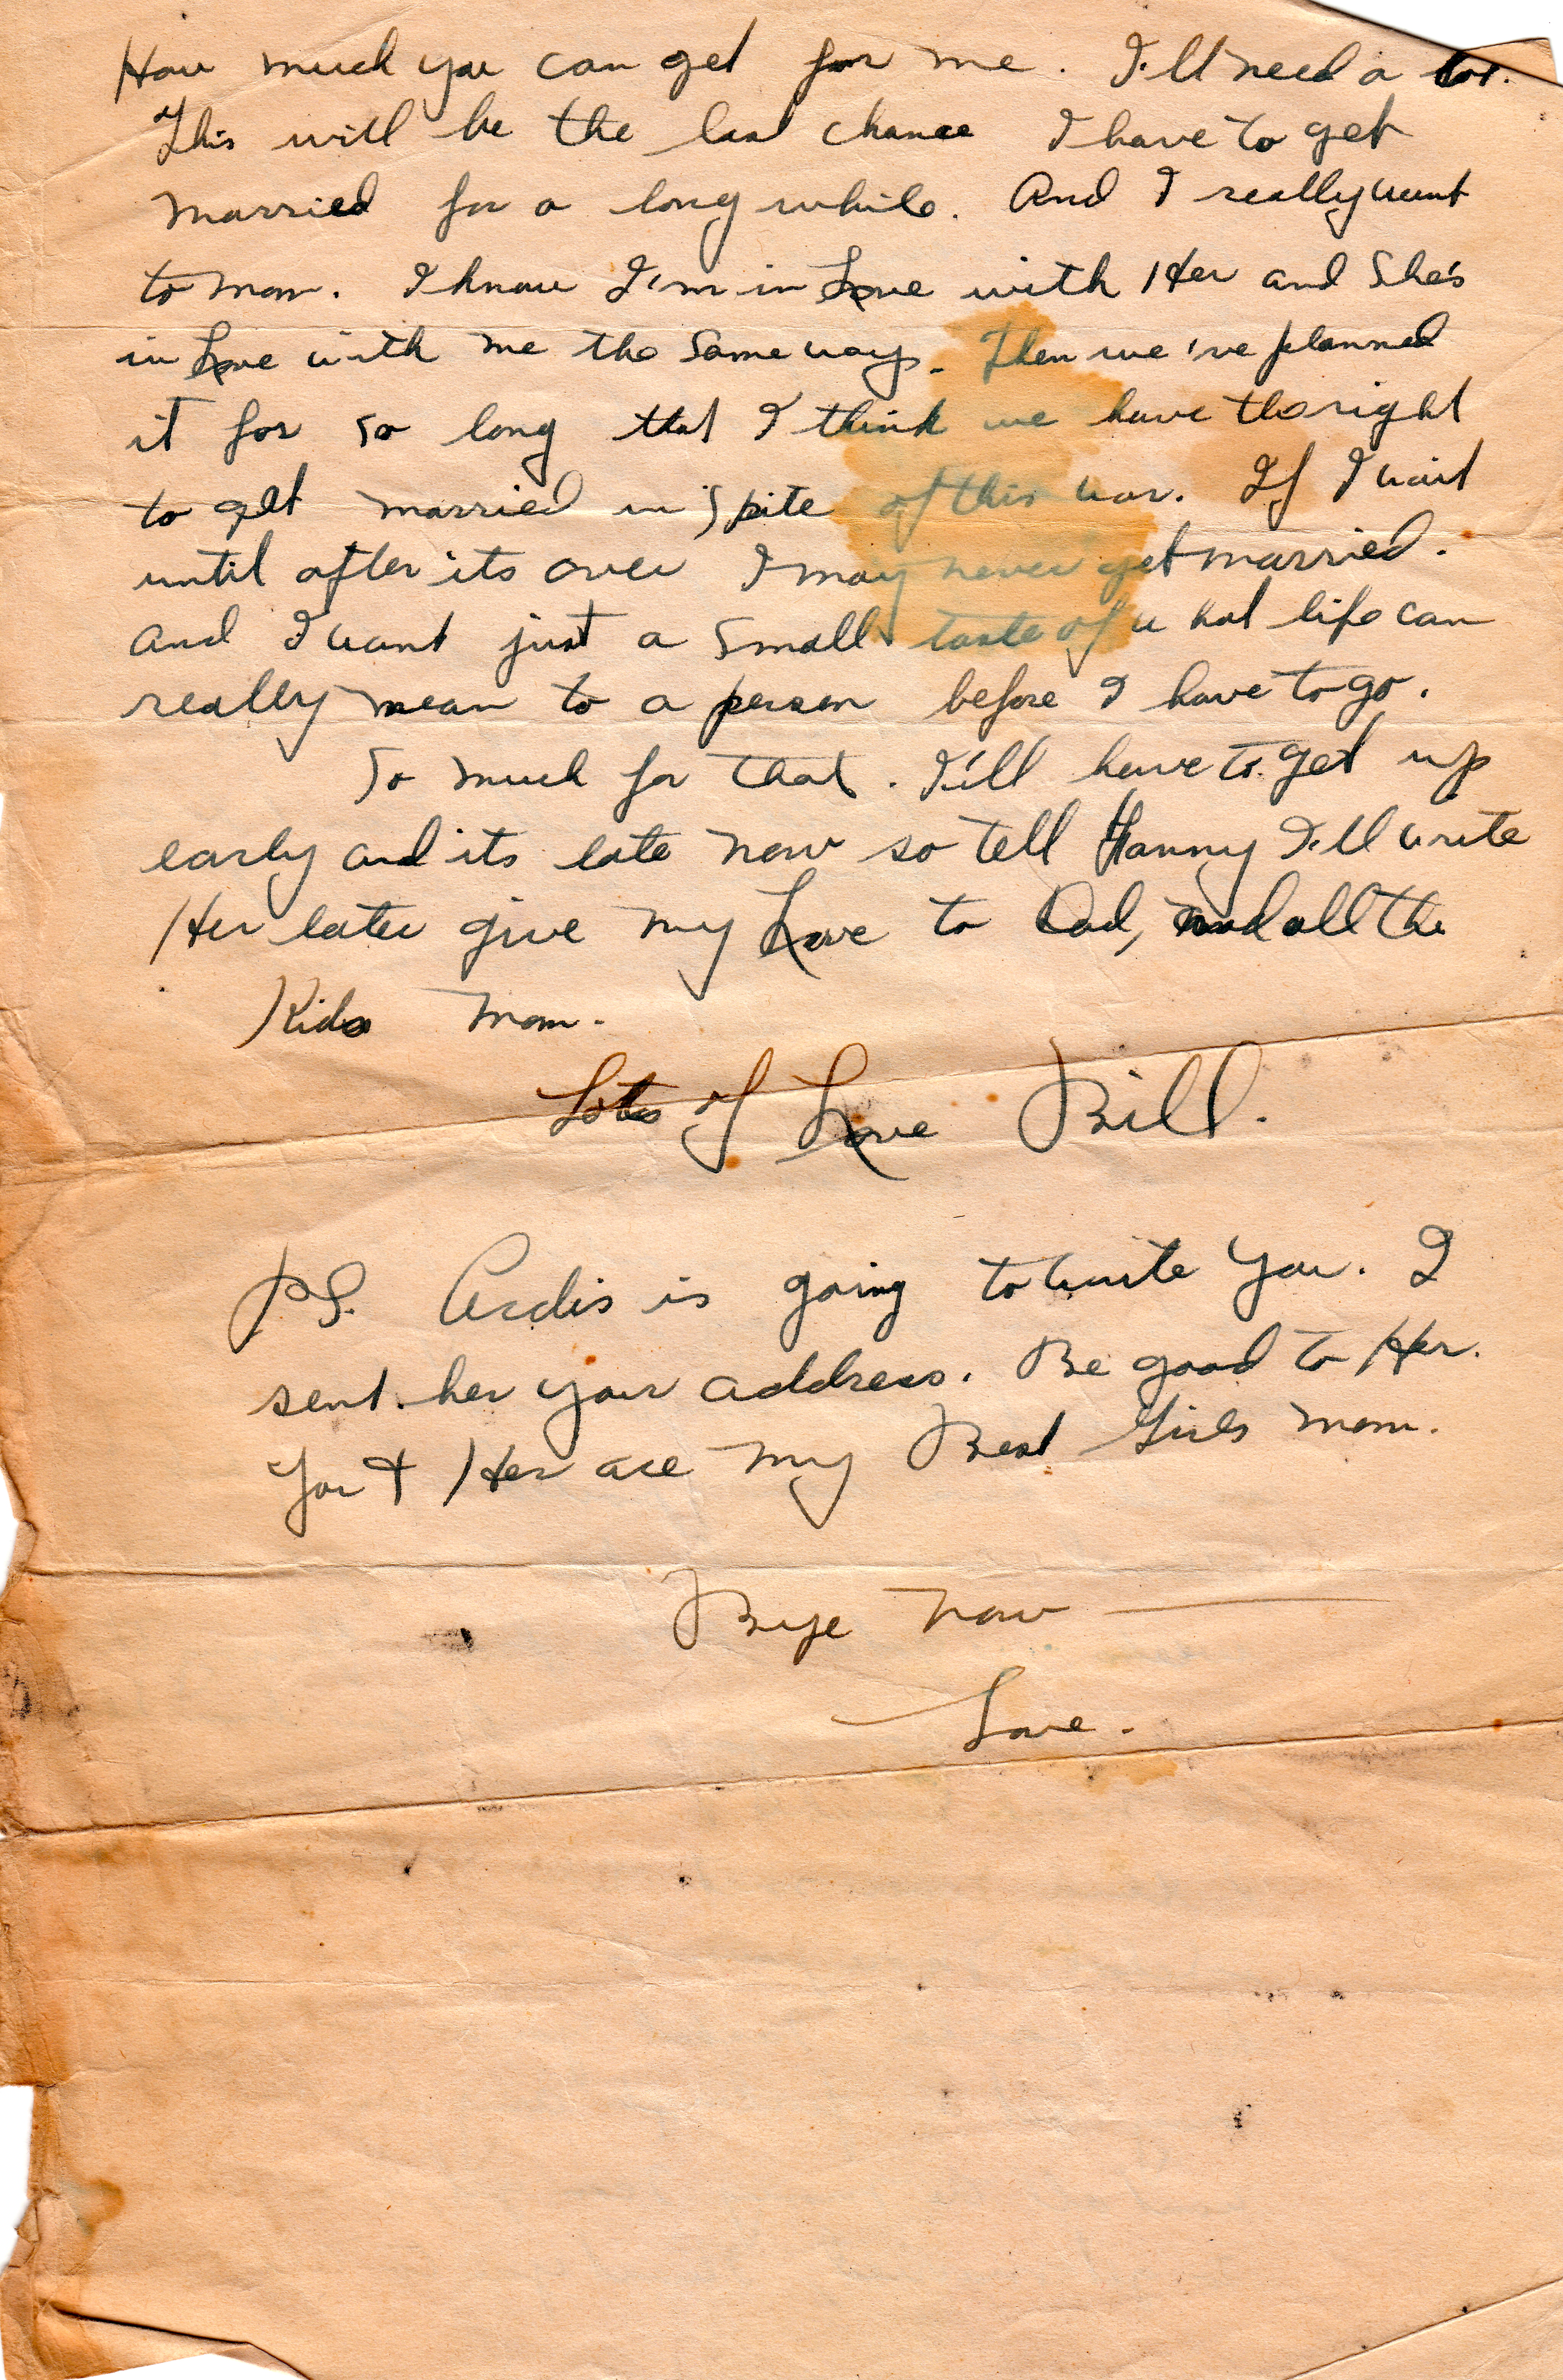 How much you can get for me. I'll need a lot.
This will be the last chance I have to get
married for a long while. And I really want
to mom. I know I'm in Love with Her and She's
in Love with me the Same way. Then we've planned
it for so long that I think we have the right
to get married in Spite of this war. If I wait
until after its over I may never get married.
and I want just a Small taste of what life can
really mean to a person before I have to go.
So much for that. I'll have to get up
early and its late now so tell Hanny I'll write
Her later give my Love to Dad, and all the
Kids Mom.
Lots of Love Bill.
P.S. Ardis is going to write You. I
sent her your address. Be good to Her.
You + Her are my Best Girls mom.
Bye now —
Love.